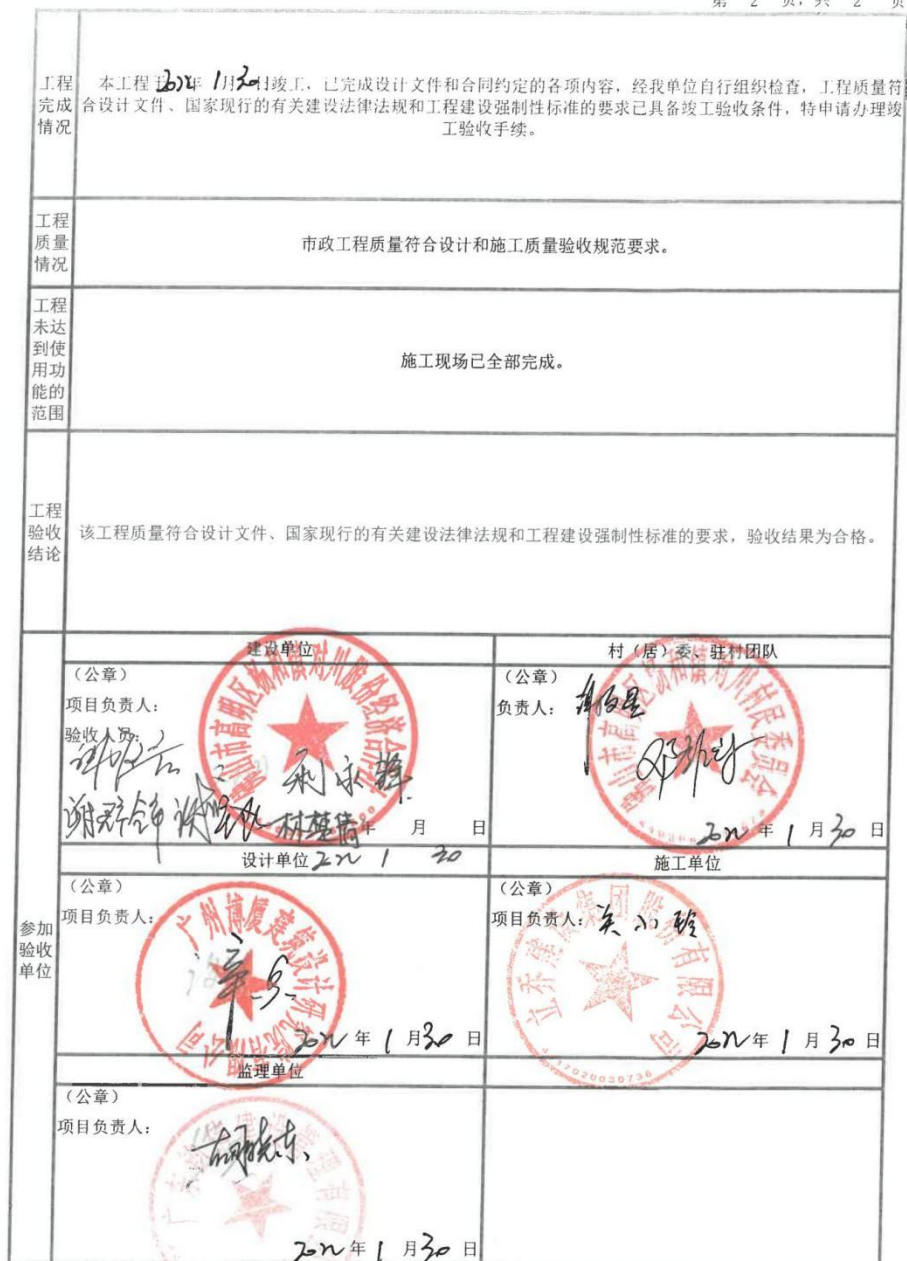 第 2 页，共 2 页
工程完成情况
本工程于2022年 1月30日竣工，已完成设计文件和合同约定的各项内容，经我单位自行组织检查，工程质量符
合设计文件、国家现行的有关建设法律法规和工程建设强制性标准的要求已具备竣工验收条件，特申请办理竣
工验收手续。
工程质量情况
市政工程质量符合设计和施工质量验收规范要求。
工程未达到使用功能的范围
施工现场已全部完成。
工程验收结论
该工程质量符合设计文件、国家现行的有关建设法律法规和工程建设强制性标准的要求，验收结果为合格。
参加验收单位
建设单位
（公章）
项目负责人：
验收人员：
年 月 日
2022 1 30
佛山市高明区杨和镇对川股份经济合作
村（居）委、驻村团队
（公章）
负责人：
2022年1月30日
佛山市高明区杨和镇对川村民委员会
设计单位
（公章）
项目负责人：
2022年1月30日
广州博厦建筑设计研究院有限公司
施工单位
（公章）
项目负责人：
2022年1月30日
立乔建设集团股份有限公司
监理单位
（公章）
项目负责人：
胡晓东
2022年1月30日